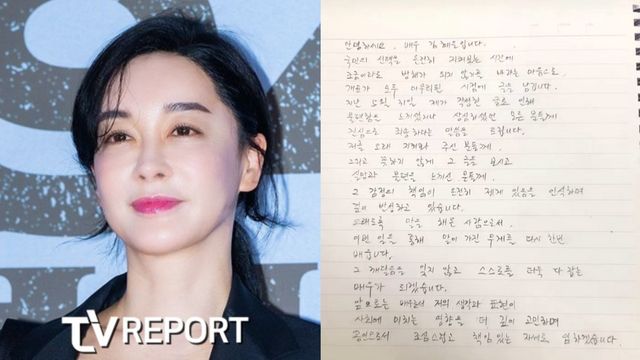 안녕하세요, 배우 김혜은입니다.
국민의 선택을 온전히 지켜보는 시간에
조금이라도 방해가 되지 않기를 바라는 마음으로,
개표가 모두 마무리된 시점에 글을 남깁니다.
지난 5월 31일, 제가 작성한 글로 인해
불편함을 느끼셨거나 상심하셨던 모든 분들께
진심으로 죄송하다는 말씀을 드립니다.
저를 오래 지켜봐 주신 분들께,
그리고 뜻하지 않게 그 글을 보시고
실망과 불편을 느끼신 분들께,
그 감정의 책임이 온전히 제게 있음을 인식하며
깊이 반성하고 있습니다.
오래도록 말을 해온 사람으로서,
이번 일을 통해 말이 가진 무게를 다시 한번
배웁니다.
그 깨달음을 잊지 않고 스스로를 더욱 다잡는
배우가 되겠습니다.
앞으로는 배우로서 저의 생각과 표현이
사회에 미치는 영향을 더 깊이 고민하며
공인으로서 조심스럽고 책임 있는 자세로 임하겠습니다.
TV REPORT